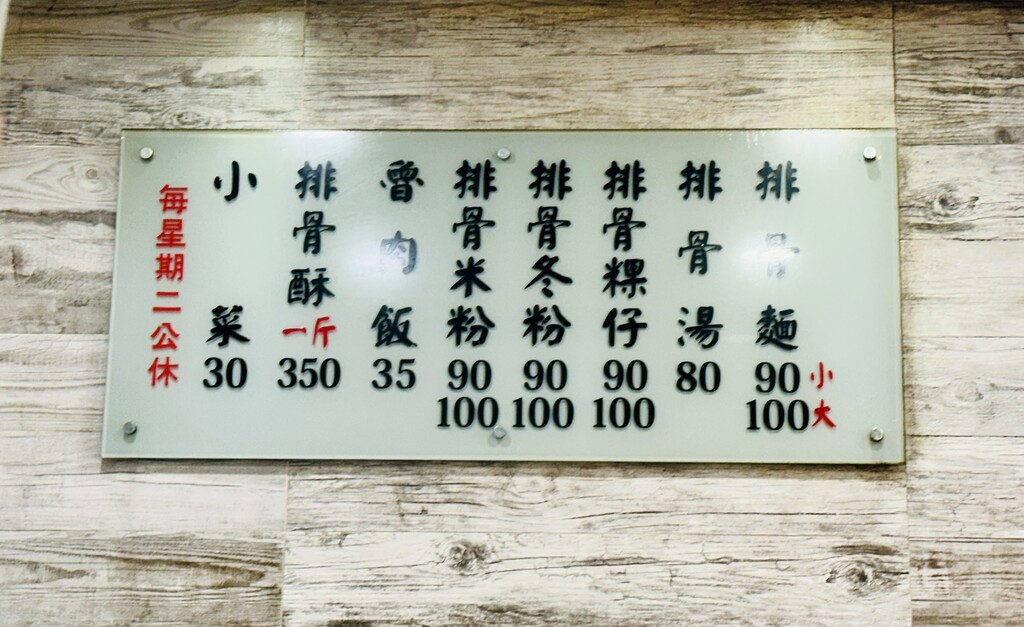 排骨麵 90 小 100 大
排骨湯 80
排骨粿仔 90 100
排骨冬粉 90 100
排骨米粉 90 100
魯肉飯 35
排骨酥一斤 350
小菜 30
每星期二公休